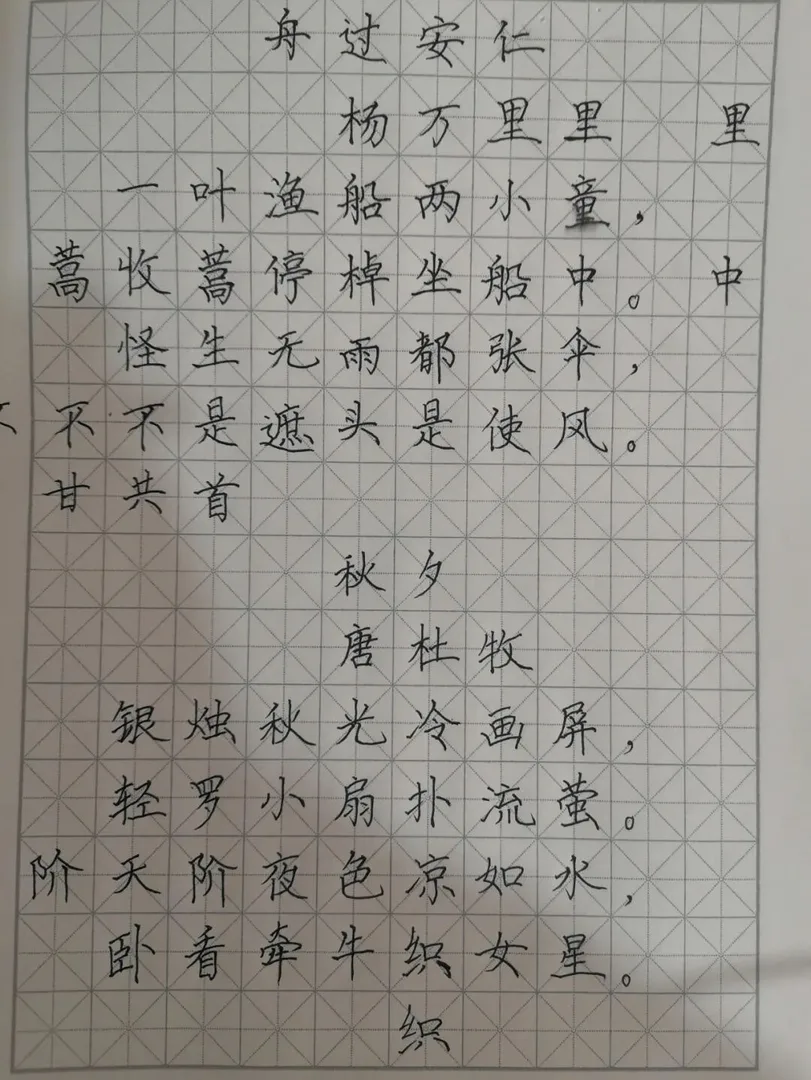 舟过安仁
杨万里里 里
一叶渔船两小童，
蒿收蒿停棹坐船中。 中
怪生无雨都张伞，
不不是遮头是使风。
甘共首
秋夕
唐杜牧
银烛秋光冷画屏，
轻罗小扇扑流萤。
阶天阶夜色凉如水，
卧看牵牛织女星。
织